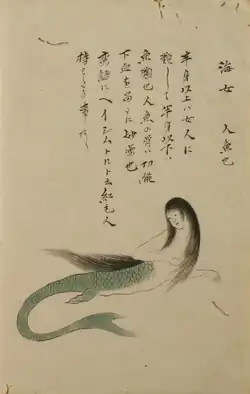 海女　人魚也
半身以上ハ女人に
類して半身以下ハ
魚類也人魚の骨ハ功能
下血を留るに妙薬也
蛮語にヘイシムトルト云紅毛人
持わたる事あり